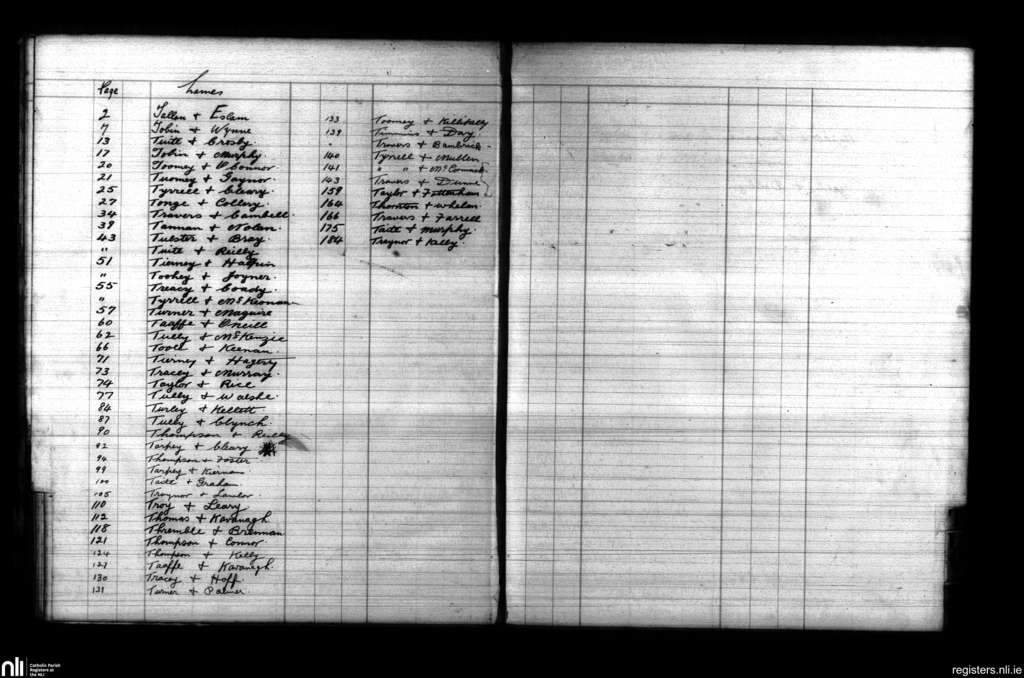 Page Names
2 Tallon + Eslam
7 Tobin + Wynne
13 Tuitt + Crosby
17 Tobin + Murphy
20 Toomey + O'Connor
21 Tuomey + Gaynor
25 Tyrrell + Cleary
27 Tonge + Collery
34 Travers + Cambell
39 Tannan + Nolan
43 Tulster + Bray
" Tuite + Reilly
51 Tierney +
" Toohey + Joyner
55 Treacy + Coady
" Tyrrell + McKeonan
57 Turner + Maguire
60 Taaffe + O'Neill
62 Tully + McKenzie
66 Toole + Keenan
71 Tierney + Hagerty
73 Tracey + Murray
74 Taylor + Rice
77 Tully + Walshe
84 Turley + Kellett
87 Tully + Clynch
90 Thompson + Reilly
92 Tarpey + Cleary
94 Thompson + Foster
99 Tarpey + Kiernan
100 Taite + Graham
105 Traynor + Lawlor
110 Troy + Leary
112 Thomas + Kavanagh
118 Thremble + Brennan
121 Thompson + Connor
124 Thompson + Kelly
127 Taaffe + Kavanagh
130 Tracey + Hoff
131 Turner + Palmer
133 Toomey + Killikelly
139 Timmins + Day
" Travers + Bambrick
140 Tyrrell + Mullen
141 " " + McCormack
143 Travers + Dunne
159 Taylor + Tottenham
164 Thornton + Whelan
166 Travers + Farrell
175 Taite + Murphy
184 Traynor + Kelly
nli Catholic Parish
Registers at
the NLI
registers.nli.ie